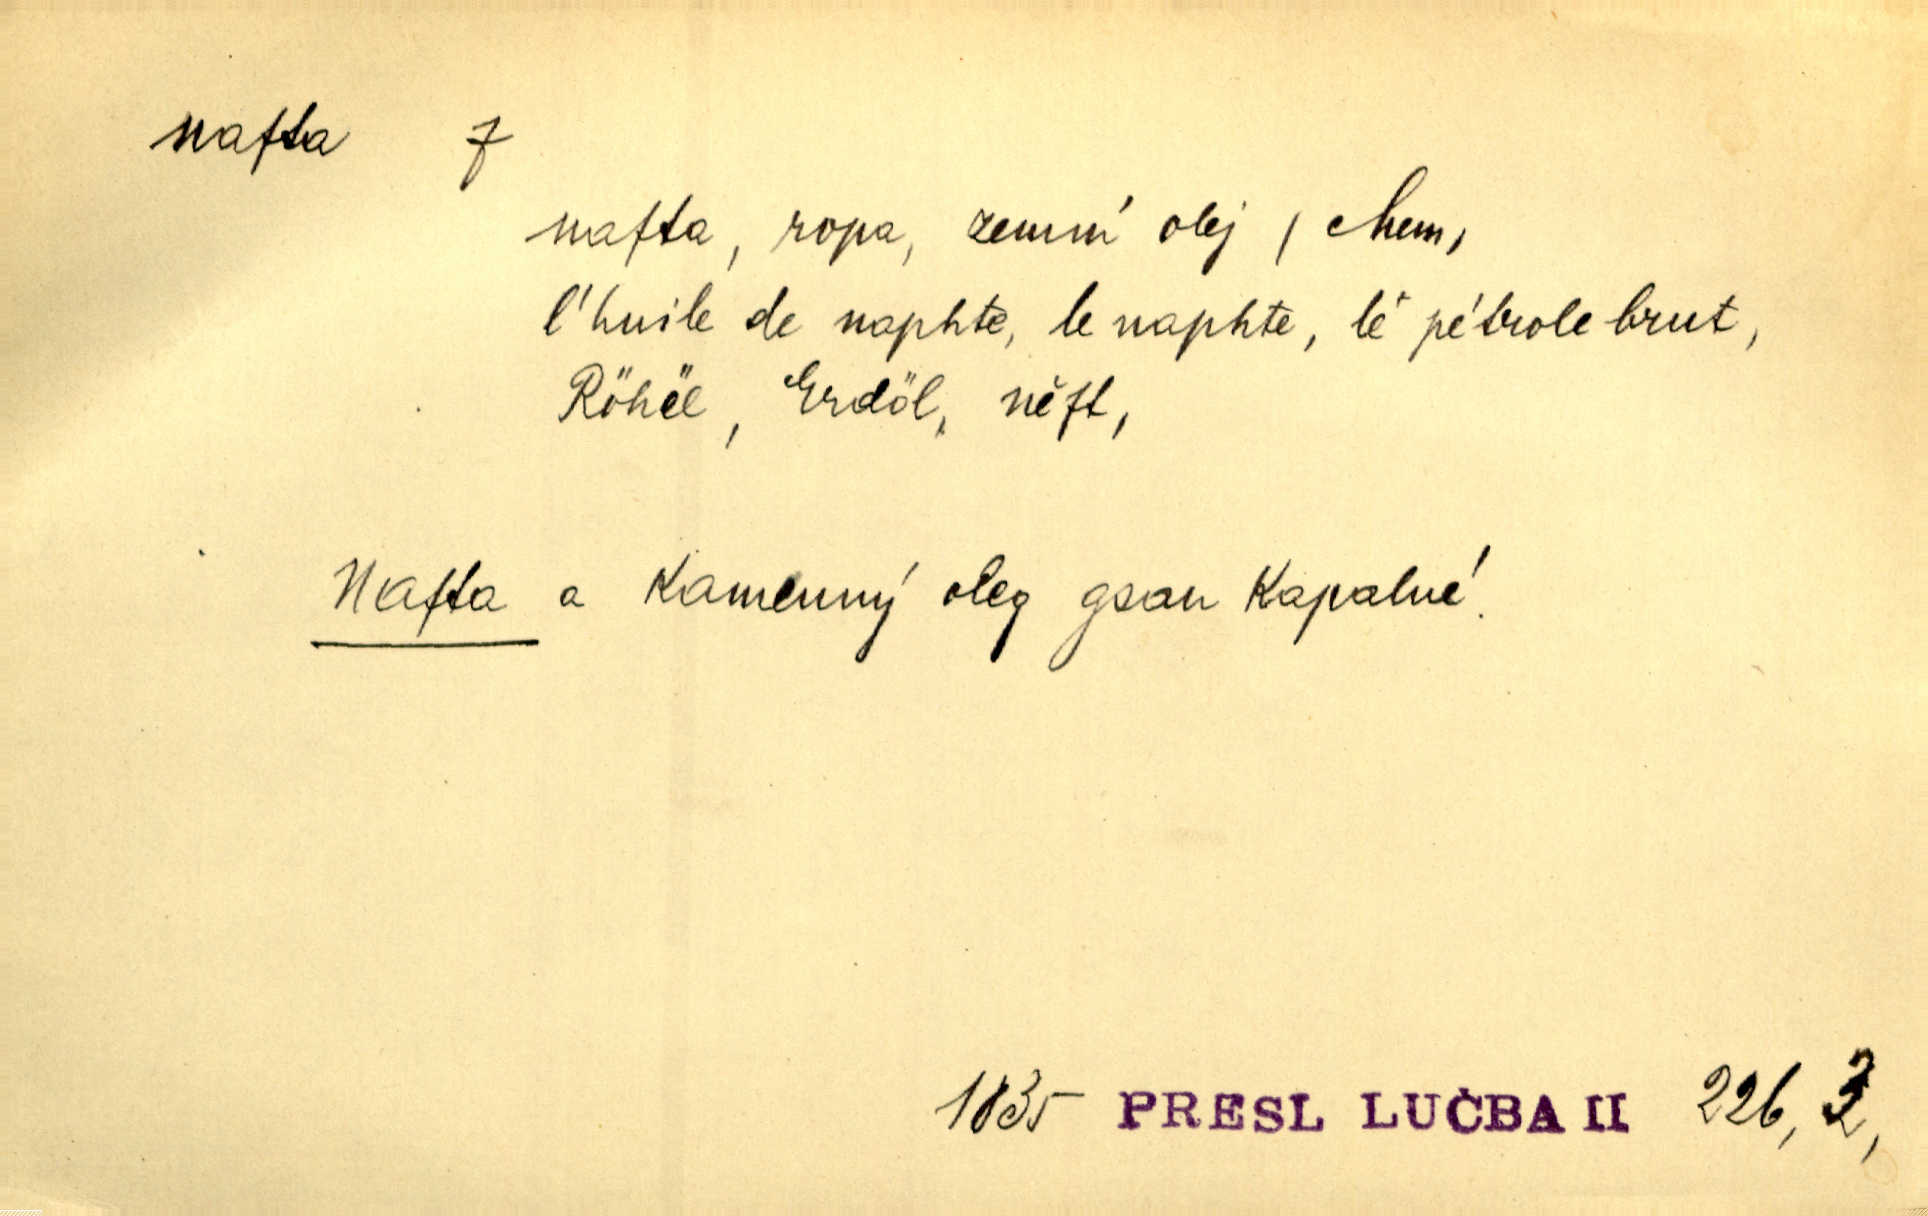 nafta f
nafta, ropa, zemní olej, chem,
l'huile de naphte, le naphte, le pétrole brut,
Röhöl, Erdöl, něft,
Nafta a kamenný oleg gsau kapalné.
1835 PRESL LUČBA II 226, 2,